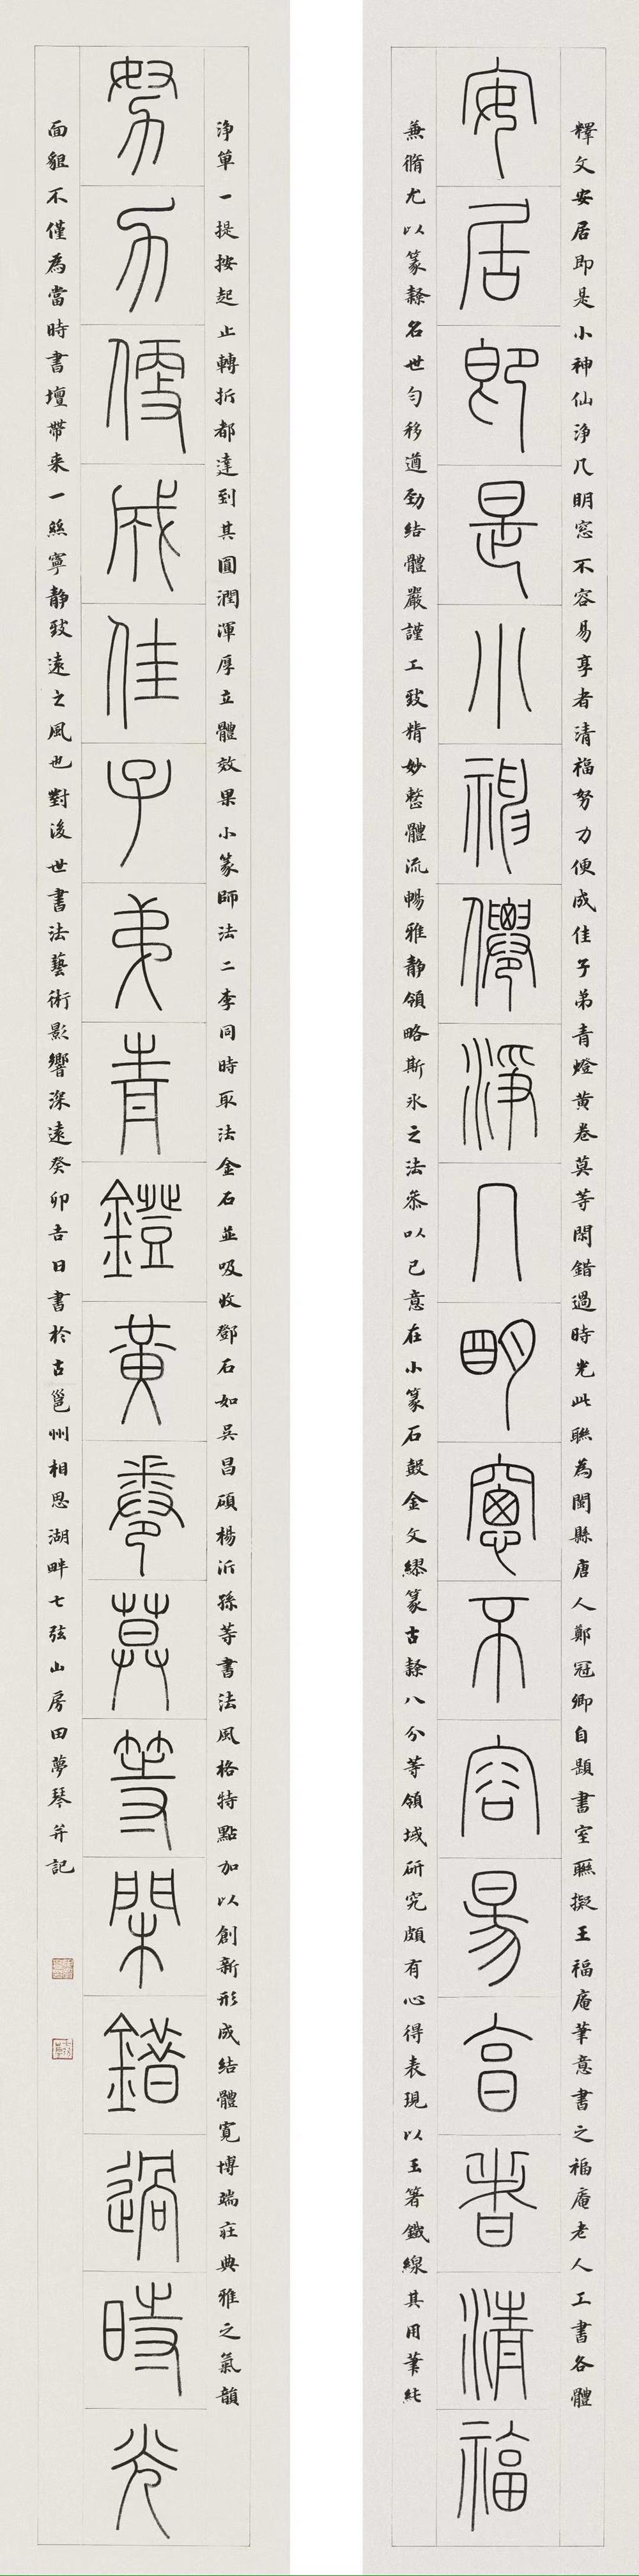 釋文安居即是小神仙淨几明窓不容易享者清福努力便成佳子弟青燈黄卷莫等閑錯過時光此聯為閩縣唐人鄭冠卿自題書室聯擬王福庵筆意書之福庵老人工書各體
安居即是小神僊淨几明窻不容易亯者清福
兼脩尤以篆隸名世勻稱遒勁結體嚴謹工致精妙整體流暢雅静領略斯冰之法叅以已意在小篆石鼓金文繆篆古隸八分等領域研究頗有心得表現以玉箸鐵線其用筆純
淨單一提按起止轉折都達到其圓潤渾厚立體效果小篆師法二李同時取法金石並吸收鄧石如吳昌碩楊沂孫等書法風格特點加以創新形成結體寬博端莊典雅之氣韻
努力便成佳子弟青鐙黃卷莫等閑錯過時光
面貌不僅為當時書壇帶来一絲寧静致遠之風也對後世書法藝術影響深遠癸卯吉日書於古邕州相思湖畔七弦山房田夢琴并記